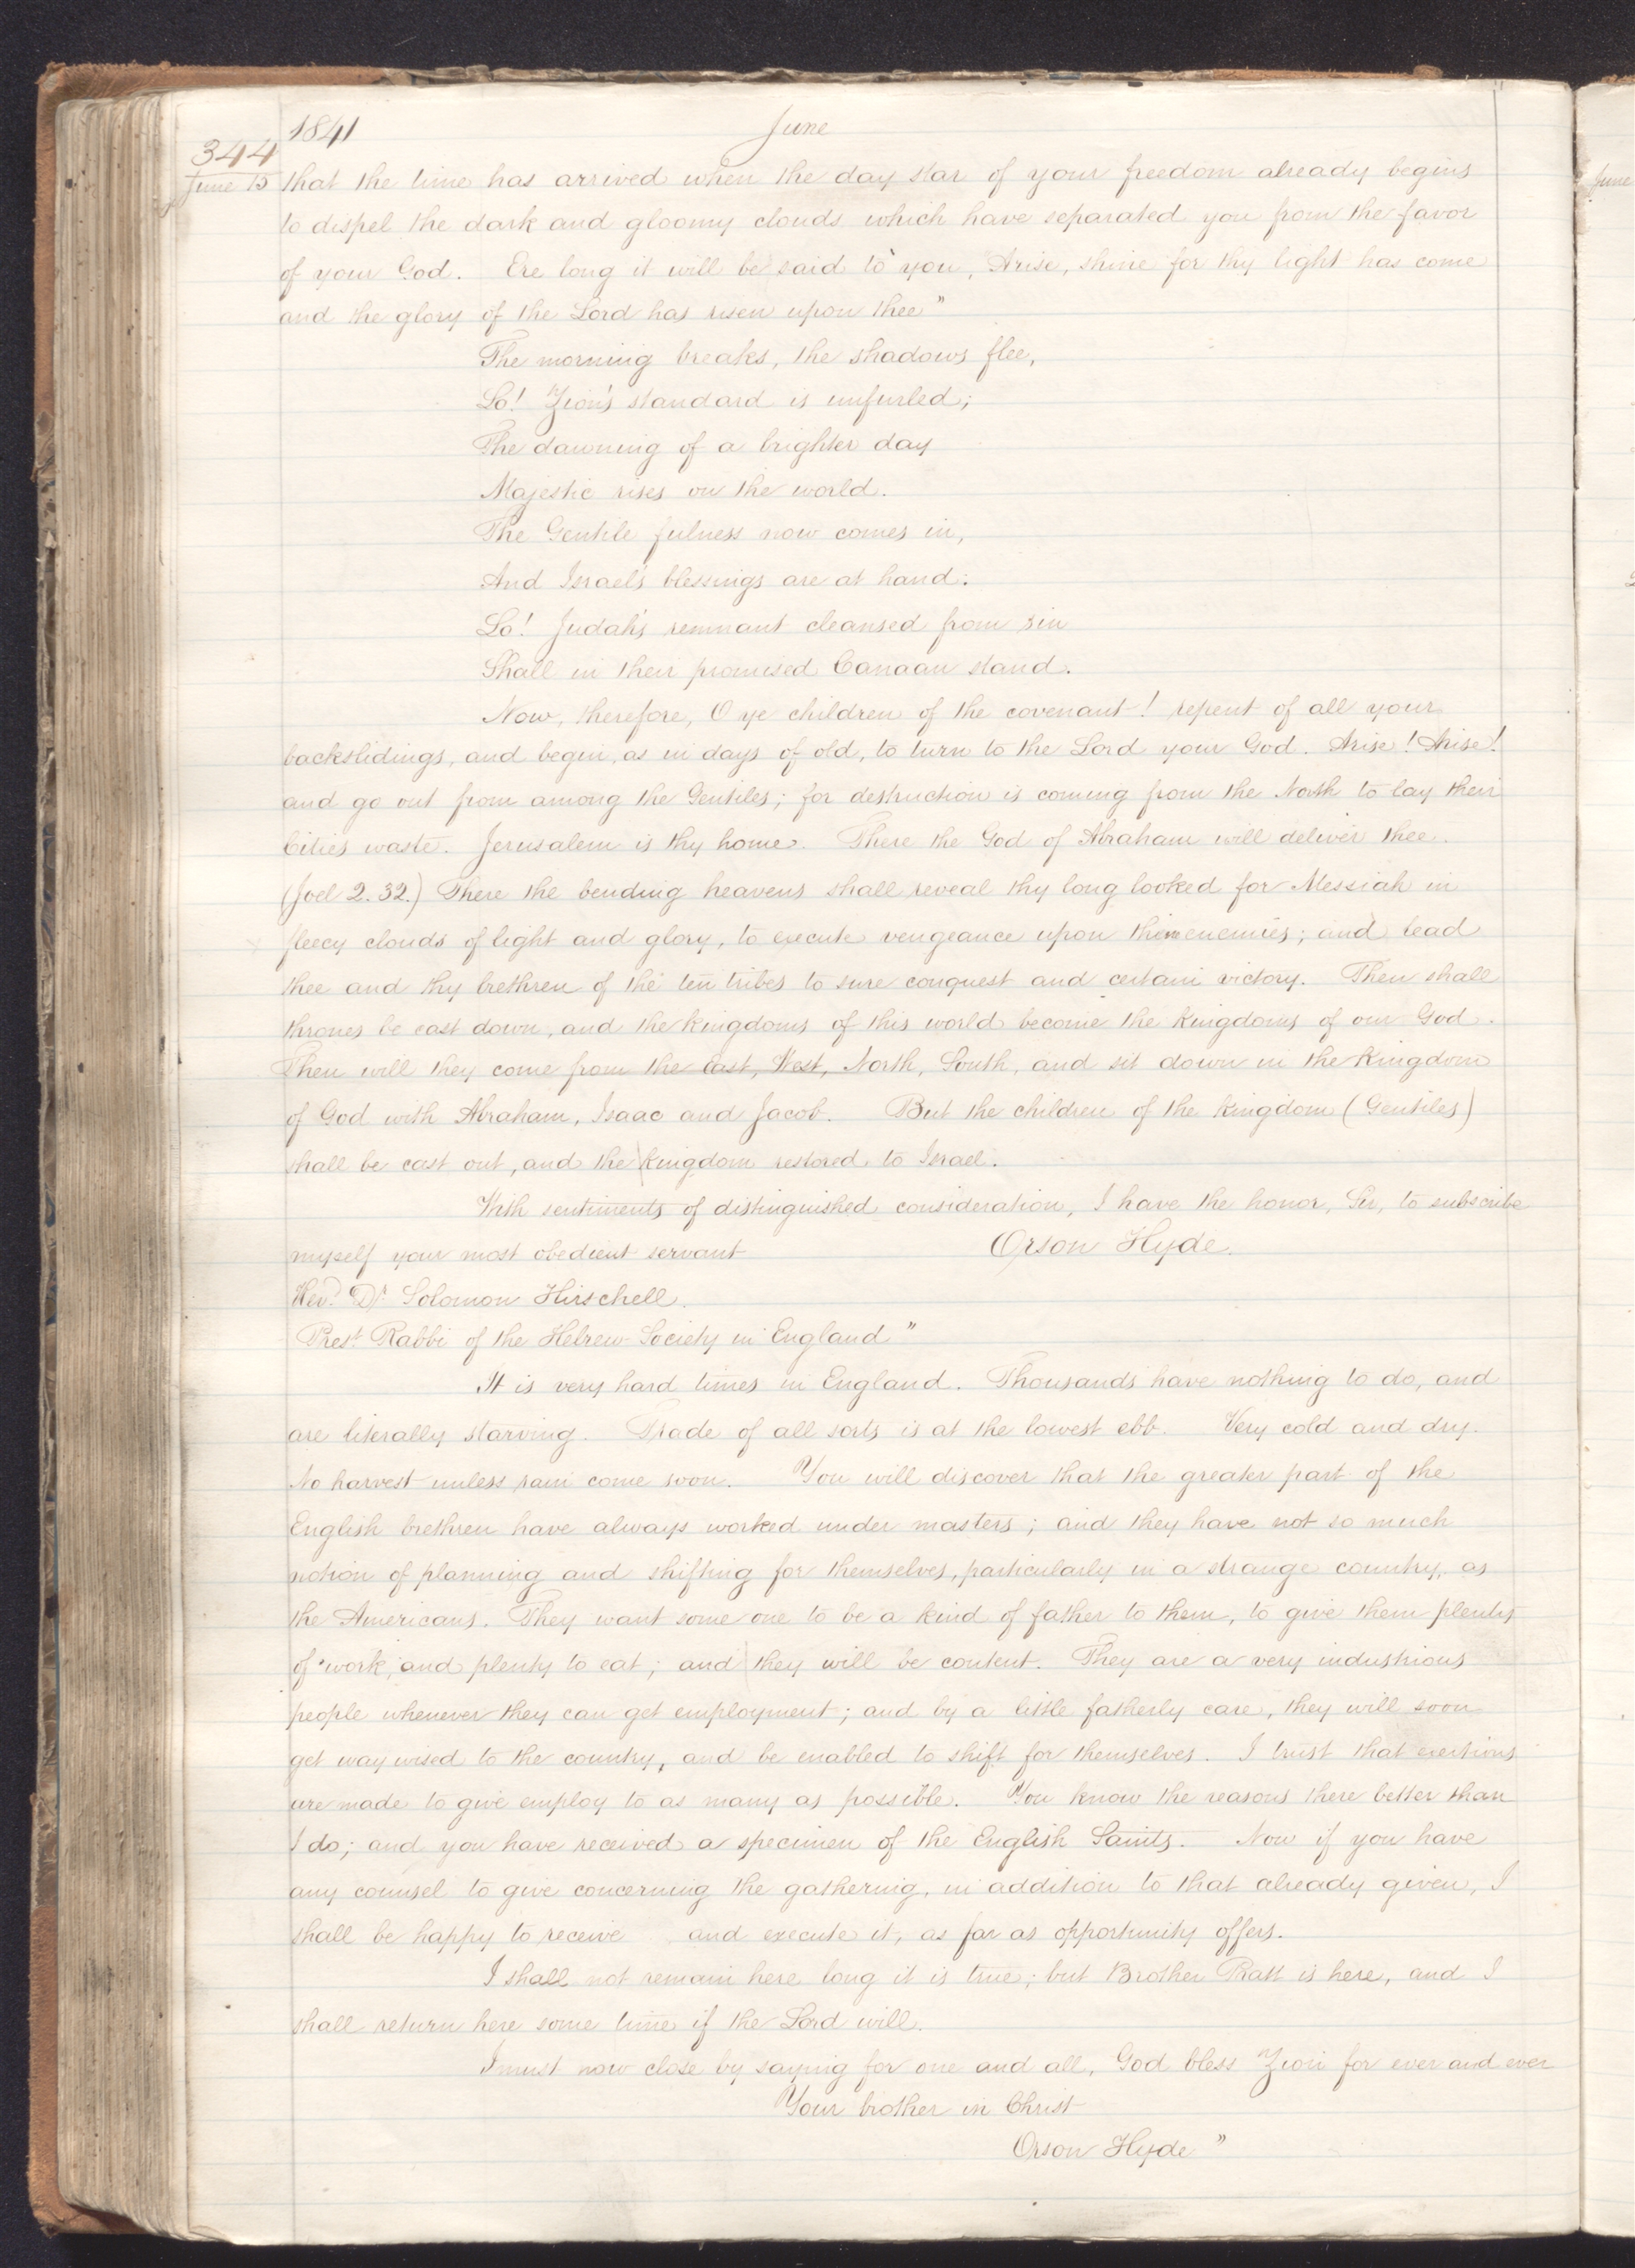 1841 June
344
June 15 that the time has arrived when the day star of your freedom already begins
to dispel the dark and gloomy clouds which have separated you from the favor
of your God. Ere long it will be said to you, Arise, shine for thy light has come
and the glory of the Lord has risen upon thee"
The morning breaks, the shadows flee,
Lo! Zion's standard is unfurled;
The dawning of a brighter day
Majestic rises on the world.
The Gentile fulness now comes in,
And Israel's blessings are at hand:
Lo! Judah's remnant cleansed from sin
Shall in their promised Canaan stand.
Now, therefore, O ye children of the covenant! repent of all your
backslidings, and begin, as in days of old, to turn to the Lord your God. Arise! Arise!
and go out from among the Gentiles; for destruction is coming from the North to lay their
Cities waste. Jerusalem is thy home. There the God of Abraham will deliver thee.
(Joel 2. 32.) There the bending heavens shall reveal thy long looked for Messiah in
fleecy clouds of light and glory, to execute vengeance upon thine enemies; and lead
thee and thy brethren of the ten tribes to sure conquest and certain victory. Then shall
thrones be cast down, and the kingdoms of this world become the kingdoms of our God.
Then will they come from the East, West, North, South, and sit down in the Kingdom
of God with Abraham, Isaac and Jacob. But the children of the kingdom (Gentiles)
shall be cast out, and the kingdom restored to Israel.
With sentiments of distinguished consideration, I have the honor, Sir, to subscribe
myself your most obedient servant Orson Hyde.
Rev.d Dr. Solomon Hirschell.
Prest. Rabbi of the Hebrew Society in England"
It is very hard times in England. Thousands have nothing to do, and
are literally starving. Trade of all sorts is at the lowest ebb. Very cold and dry.
No harvest unless rain come soon. You will discover that the greater part of the
English brethren have always worked under masters; and they have not so much
notion of planning and shifting for themselves, particularly in a strange country, as
the Americans. They want some one to be a kind of father to them, to give them plenty
of work, and plenty to eat; and they will be content. They are a very industrious
people whenever they can get employment; and by a little fatherly care, they will soon
get way wised to the country, and be enabled to shift for themselves. I trust that exertions
are made to give employ to as many as possible. You know the reasons there better than
I do; and you have received a specimen of the English Saints. Now if you have
any counsel to give concerning the gathering, in addition to that already given, I
shall be happy to receive and execute it, as far as opportunity offers.
I shall not remain here long it is true; but Brother Pratt is here, and I
shall return here some time if the Lord will.
I must now close by saying for one and all, God bless Zion for ever and ever
Your brother in Christ
Orson Hyde"
June